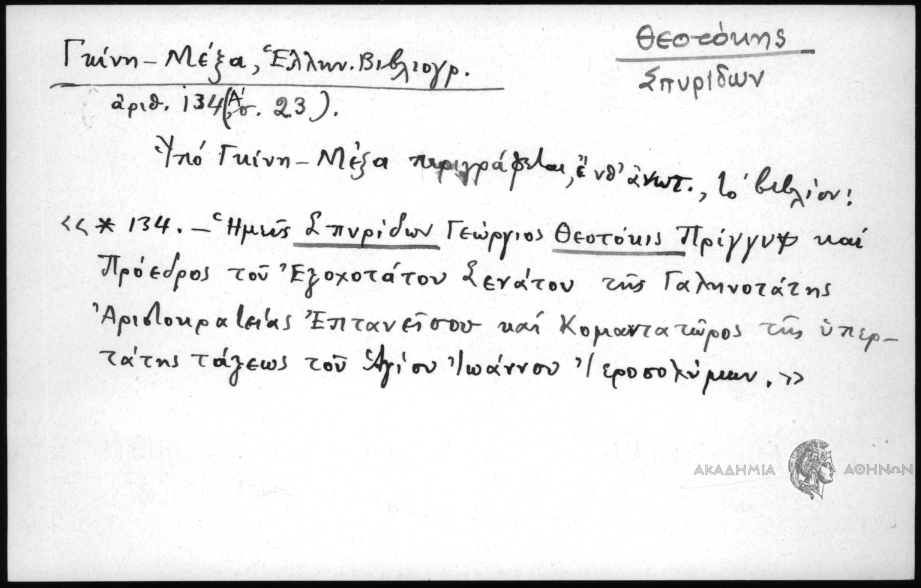 Θεοτόκης
Σπυρίδων
Γκίνη – Μέξα, Ἑλλην. Βιβλιογρ.
ἀριθ. 134 (Α΄ σ. 23).
Ὑπό Γκίνη – Μέξα περιγράφεται, ἔνθ' ἀνωτ., τό βιβλίον:
«* 134. – Ἡμεῖς Σπυρίδων Γεώργιος Θεοτόκις Πρίγγυψ καί
Πρόεδρος τοῦ Ἐξοχοτάτου Σενάτου τῆς Γαληνοτάτης
Ἀριστοκρατείας Ἑπτανείσου καί Κομαντατῶρος τῆς ὑπερ-
τάτης τάξεως τοῦ Ἁγίου Ἰωάννου Ἱεροσολύμων.»
ΑΚΑΔΗΜΙΑ ΑΘΗΝΩΝ